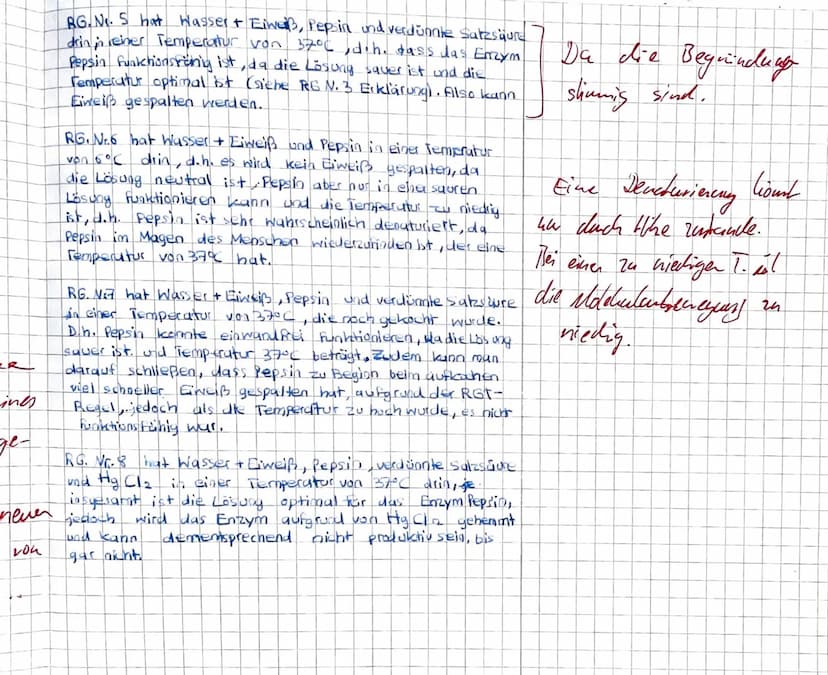 RG. Nr. 5 hat Wasser + Eiweiß, Pepsin und verdünnte Salzsäure
drin, in einer Temperatur von 37°C, d.h. dass das Enzym
Pepsin funktionsfähig ist, da die Lösung sauer ist und die
Temperatur optimal ist (siehe RG N. 3 Erklärung). Also kann
Eiweiß gespalten werden.
RG. Nr. 6 hat Wasser + Eiweiß und Pepsin in einer Temperatur
von 6°C drin, d.h. es wird kein Eiweiß gespalten, da
die Lösung neutral ist, Pepsin aber nur in einer sauren
Lösung funktionieren kann und die Temperatur zu niedig
ist, d.h. Pepsin ist sehr wahrscheinlich denaturiert, da
Pepsin im Magen des Menschen wiederzufinden ist, der eine
Temperatur von 37°C hat.
RG. Nr. 7 hat Wasser + Eiweiß, Pepsin und verdünnte Salzsäure
in einer Temperatur von 37°C, die noch gekocht wurde.
D.h. Pepsin konnte einwandfrei funktionieren, da die Lösung
sauer ist und Temperatur 37°C beträgt. Zudem kann man
darauf schließen, dass Pepsin zu Beginn beim aufkochen
viel schneller Eiweiß gespalten hat, aufgrund der RGT-
Regel, jedoch als die Temperatur zu hoch wurde, es nicht
funktionsfähig war.
RG. Nr. 8 hat Wasser + Eiweiß, Pepsin, verdünnte Salzsäure
und HgCl2 in einer Temperatur von 37°C drin,
insgesamt ist die Lösung optimal für das Enzym Pepsin,
jedoch wird das Enzym aufgrund von HgCl2 gehemmt
und kann dementsprechend nicht produktiv sein, bis
gar nicht.
Da die Begründung
stimmig sind.
Eine Denaturierung kommt
nur durch Hitze zustande.
Bei einer zu niedrigen T. ist
die Molekularbewegung zu
niedrig.
ines
ge-
neuen
von